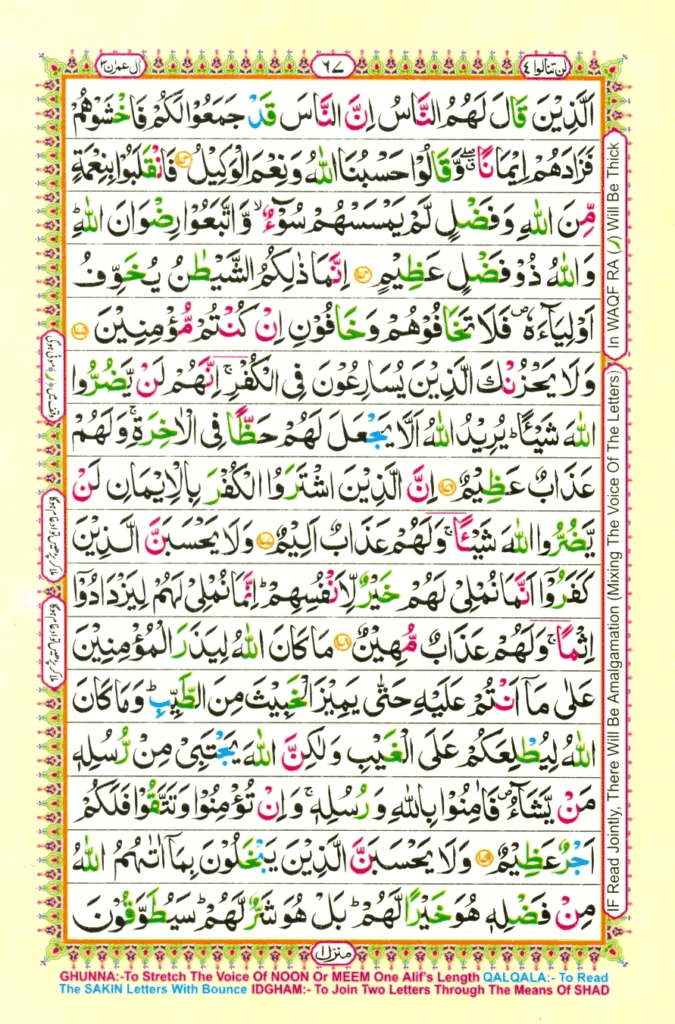 لن تنالوا ٤
٦٧
اٰل عمرٰن ٣
الَّذِيْنَ قَالَ لَهُمُ النَّاسُ اِنَّ النَّاسَ قَدْ جَمَعُوْا لَكُمْ فَاخْشَوْهُمْ
فَزَادَهُمْ اِيْمَانًا ۖۗ وَّقَالُوْا حَسْبُنَا اللّٰهُ وَنِعْمَ الْوَكِيْلُ ﴿١٧٣﴾ فَانْقَلَبُوْا بِنِعْمَةٍ
مِّنَ اللّٰهِ وَفَضْلٍ لَّمْ يَمْسَسْهُمْ سُوْٓءٌ ۙ وَّاتَّبَعُوْا رِضْوَانَ اللّٰهِ ؕ
وَاللّٰهُ ذُوْ فَضْلٍ عَظِيْمٍ ﴿١٧٤﴾ اِنَّمَا ذٰلِكُمُ الشَّيْطٰنُ يُخَوِّفُ
اَوْلِيَآءَهٗ ۪ فَلَا تَخَافُوْهُمْ وَخَافُوْنِ اِنْ كُنْتُمْ مُّؤْمِنِيْنَ ﴿١٧٥﴾
وَلَا يَحْزُنْكَ الَّذِيْنَ يُسَارِعُوْنَ فِى الْكُفْرِ ۚ اِنَّهُمْ لَنْ يَّضُرُّوا
اللّٰهَ شَيْـًٔا ؕ يُرِيْدُ اللّٰهُ اَلَّا يَجْعَلَ لَهُمْ حَظًّا فِى الْاٰخِرَةِ ۚ وَلَهُمْ
عَذَابٌ عَظِيْمٌ ﴿١٧٦﴾ اِنَّ الَّذِيْنَ اشْتَرَوُا الْكُفْرَ بِالْاِيْمَانِ لَنْ
يَّضُرُّوا اللّٰهَ شَيْـًٔا ۚ وَلَهُمْ عَذَابٌ اَلِيْمٌ ﴿١٧٧﴾ وَلَا يَحْسَبَنَّ الَّذِيْنَ
كَفَرُوْٓا اَنَّمَا نُمْلِىْ لَهُمْ خَيْرٌ لِّاَنْفُسِهِمْ ؕ اِنَّمَا نُمْلِىْ لَهُمْ لِيَزْدَادُوْٓا
اِثْمًا ۚ وَلَهُمْ عَذَابٌ مُّهِيْنٌ ﴿١٧٨﴾ مَا كَانَ اللّٰهُ لِيَذَرَ الْمُؤْمِنِيْنَ
عَلٰى مَآ اَنْتُمْ عَلَيْهِ حَتّٰى يَمِيْزَ الْخَبِيْثَ مِنَ الطَّيِّبِ ؕ وَمَا كَانَ
اللّٰهُ لِيُطْلِعَكُمْ عَلَى الْغَيْبِ وَلٰكِنَّ اللّٰهَ يَجْتَبِىْ مِنْ رُّسُلِهٖ
مَنْ يَّشَآءُ ۪ فَاٰمِنُوْا بِاللّٰهِ وَرُسُلِهٖ ۚ وَاِنْ تُؤْمِنُوْا وَتَتَّقُوْا فَلَكُمْ
اَجْرٌ عَظِيْمٌ ﴿١٧٩﴾ وَلَا يَحْسَبَنَّ الَّذِيْنَ يَبْخَلُوْنَ بِمَآ اٰتٰىهُمُ اللّٰهُ
مِنْ فَضْلِهٖ هُوَ خَيْرًا لَّهُمْ ؕ بَلْ هُوَ شَرٌّ لَّهُمْ ؕ سَيُطَوَّقُوْنَ
منزل ١
In WAQF RA (ر) Will Be Thick
IF Read Jointly, There Will Be Amalgamation (Mixing The Voice Of The Letters)
GHUNNA:-To Stretch The Voice Of NOON Or MEEM One Alif's Length QALQALA:- To Read
The SAKIN Letters With Bounce IDGHAM:- To Join Two Letters Through The Means Of SHAD